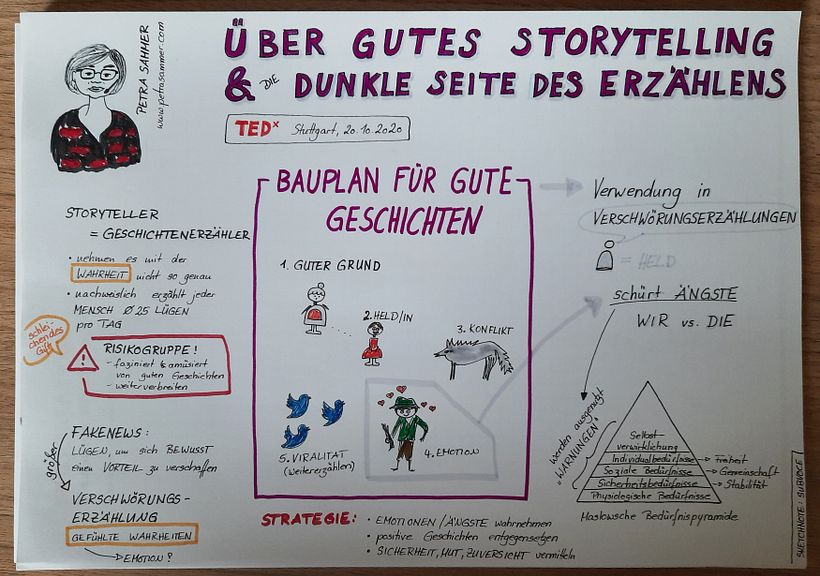 PETRA SAMMER
www.petrasammer.com
ÜBER GUTES STORYTELLING
& DIE DUNKLE SEITE DES ERZÄHLENS
TEDx Stuttgart, 20.10.2020
STORYTELLER
= GESCHICHTENERZÄHLER
• nehmen es mit der
WAHRHEIT nicht so genau
• nachweislich erzählt jeder
MENSCH Ø 25 LÜGEN
pro TAG
schlei-
chendes
Gift
RISIKOGRUPPE!
- fasziniert & amüsiert
von guten Geschichten
- weiterverbreiten
FAKENEWS:
LÜGEN, um sich BEWUSST
einen VORTEIL zu verschaffen
größer
VERSCHWÖRUNGS-
ERZÄHLUNG
GEFÜHLTE WAHRHEITEN
EMOTION?
BAUPLAN FÜR GUTE
GESCHICHTEN
1. GUTER GRUND
2. HELD/IN
3. KONFLIKT
4. EMOTION
5. VIRALITÄT
(weitererzählen)
STRATEGIE:
• EMOTIONEN/ÄNGSTE wahrnehmen
• positive Geschichten entgegensetzen
• SICHERHEIT, MUT, ZUVERSICHT vermitteln
Verwendung in
VERSCHWÖRUNGSERZÄHLUNGEN
= HELD
schürt ÄNGSTE
WIR vs. DIE
werden ausgenutzt
"WARNUNGEN"
Selbst-
verwirklichung
Individualbedürfnisse → Freiheit
Soziale Bedürfnisse → Gemeinschaft
Sicherheitsbedürfnisse → Stabilität
Physiologische Bedürfnisse
Maslowsche Bedürfnispyramide
SKETCHNOTE: